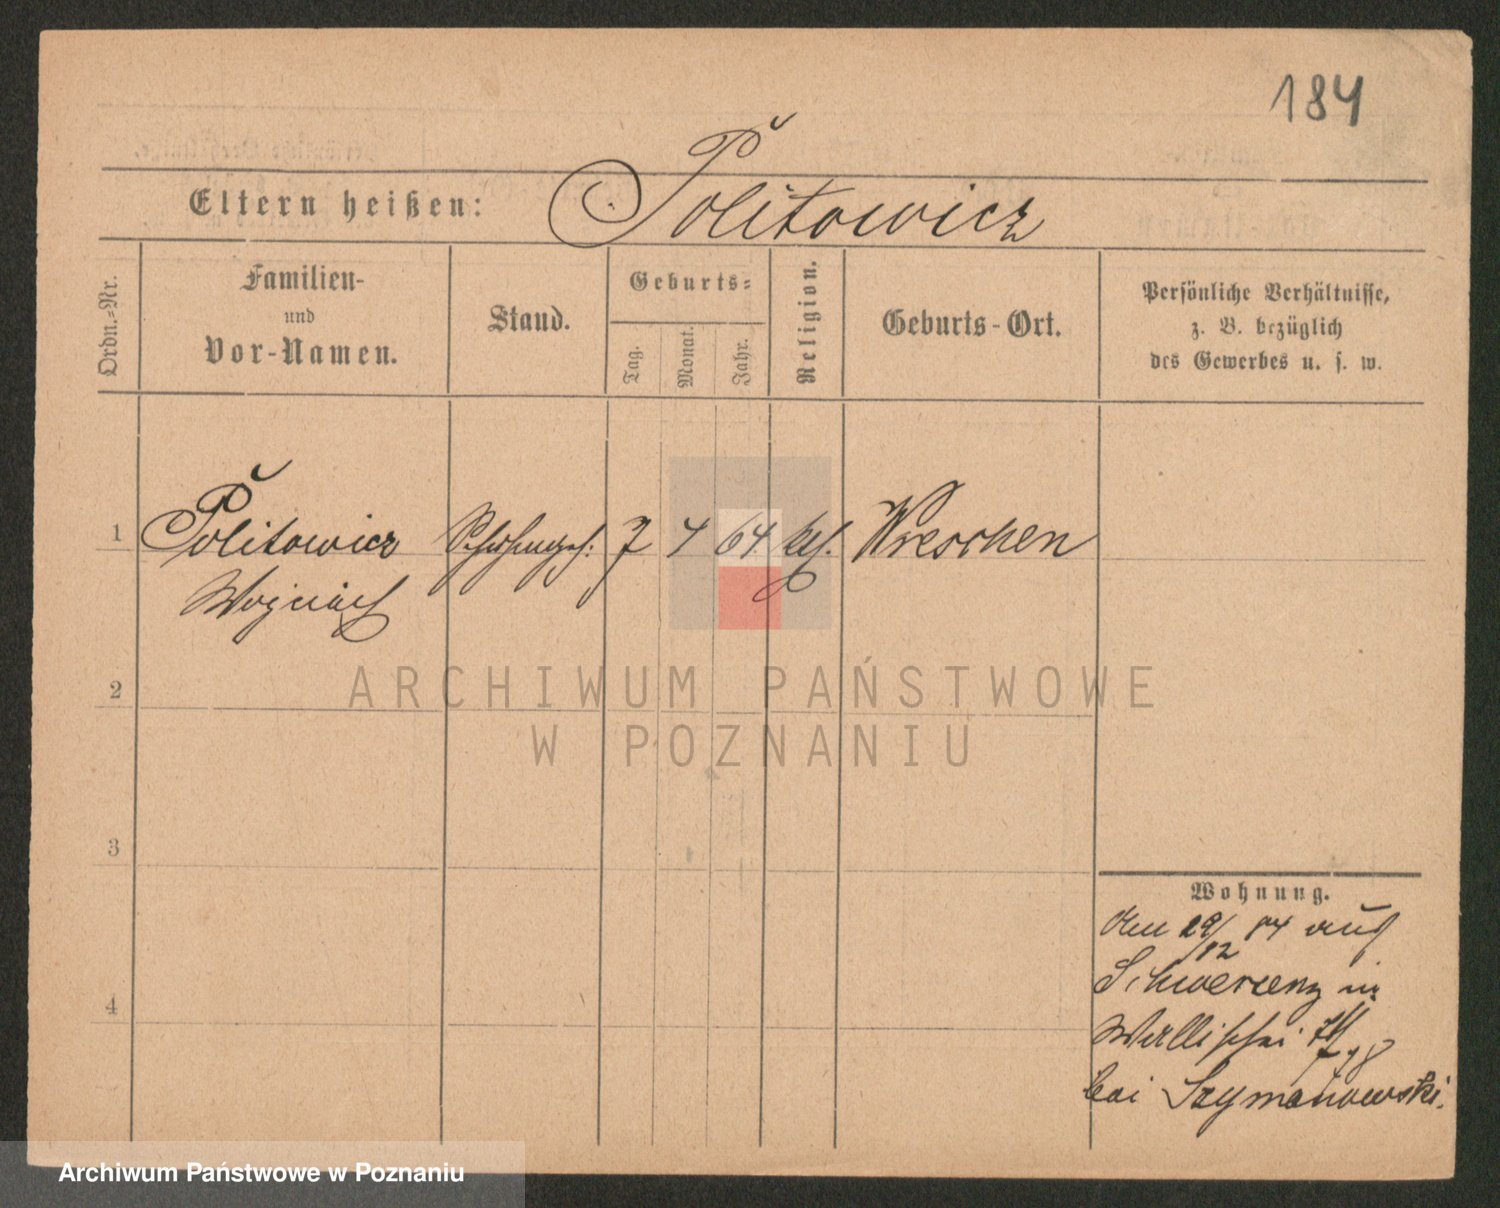 184
Eltern heißen: Politowicz
Ordn.-Nr.
Familien-
und
Vor-Namen.
Stand.
Geburts-
Tag.
Monat.
Jahr.
Religion.
Geburts-Ort.
Persönliche Verhältnisse,
z. B. bezüglich
des Gewerbes u. s. w.
1 Politowicz 7 4 64 kth. Wreschen
Wojciech
2
ARCHIWUM PAŃSTWOWE
W POZNANIU
3
4
Wohnung.
den 29/12 84 aus
Schwersenz in
Wallischei
bei Szymanowski.
Archiwum Państwowe w Poznaniu